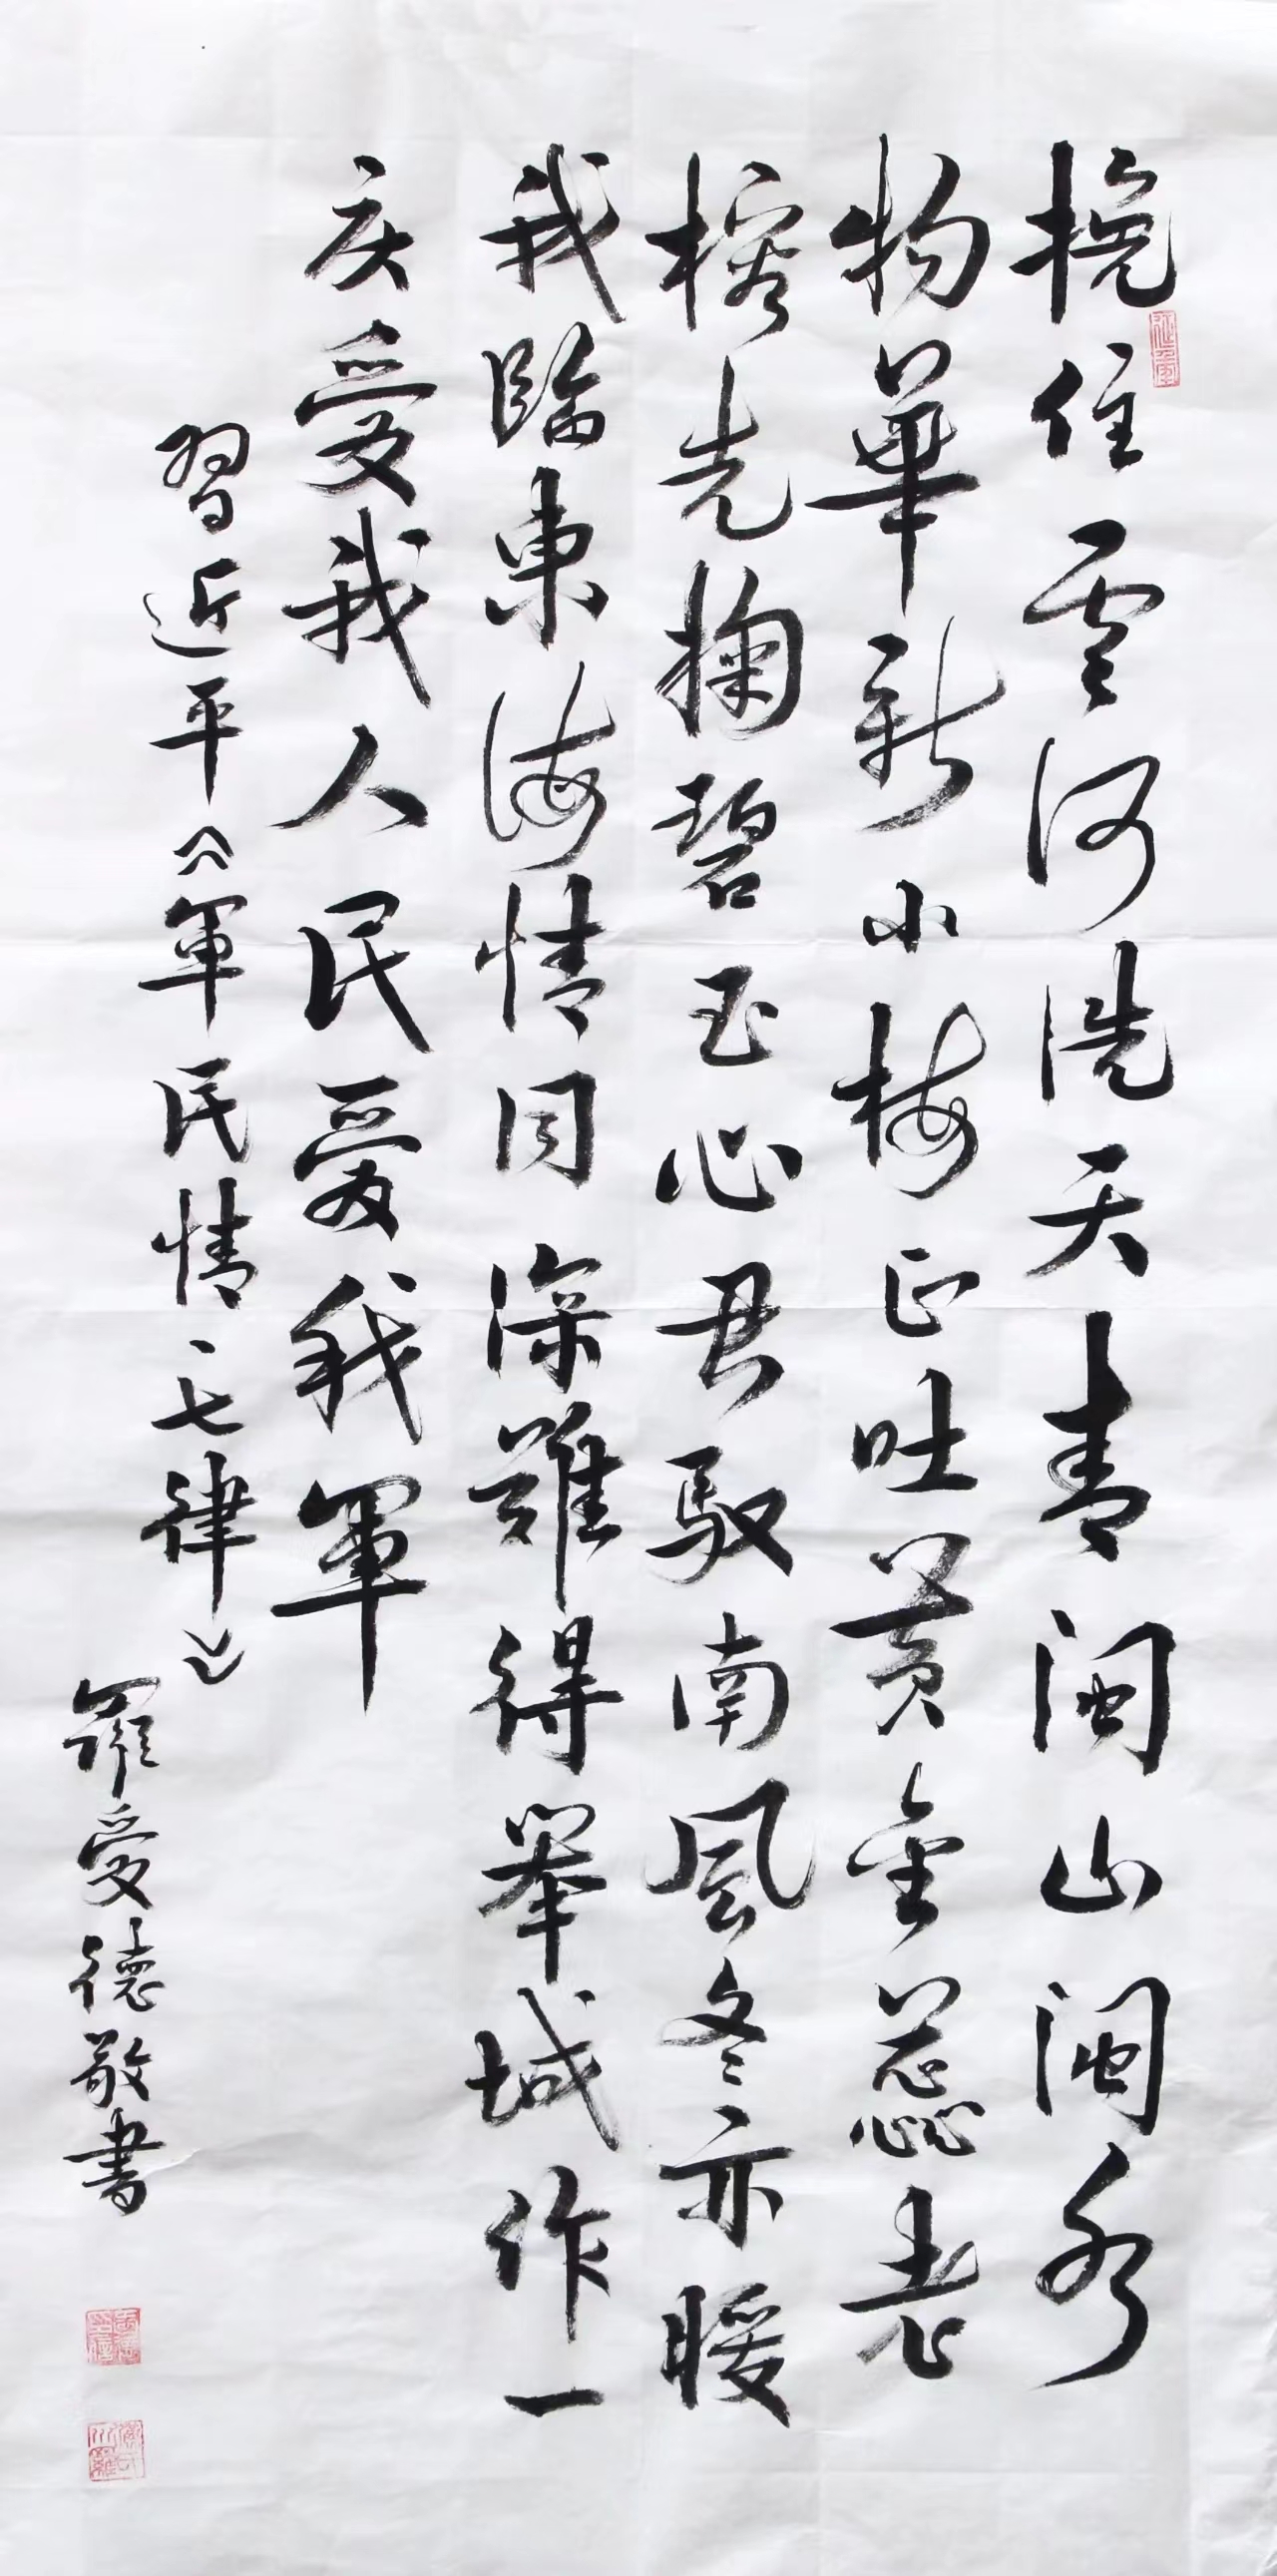 挽住雲河洗天青闽山闽水
物華新小梅正吐黄金蕊老
榕先掬碧玉心君驭南風冬亦暖
我臨東海情同深難得举城作一
庆爱我人民爱我軍
習近平《軍民情·七律》
羅爱德敬書